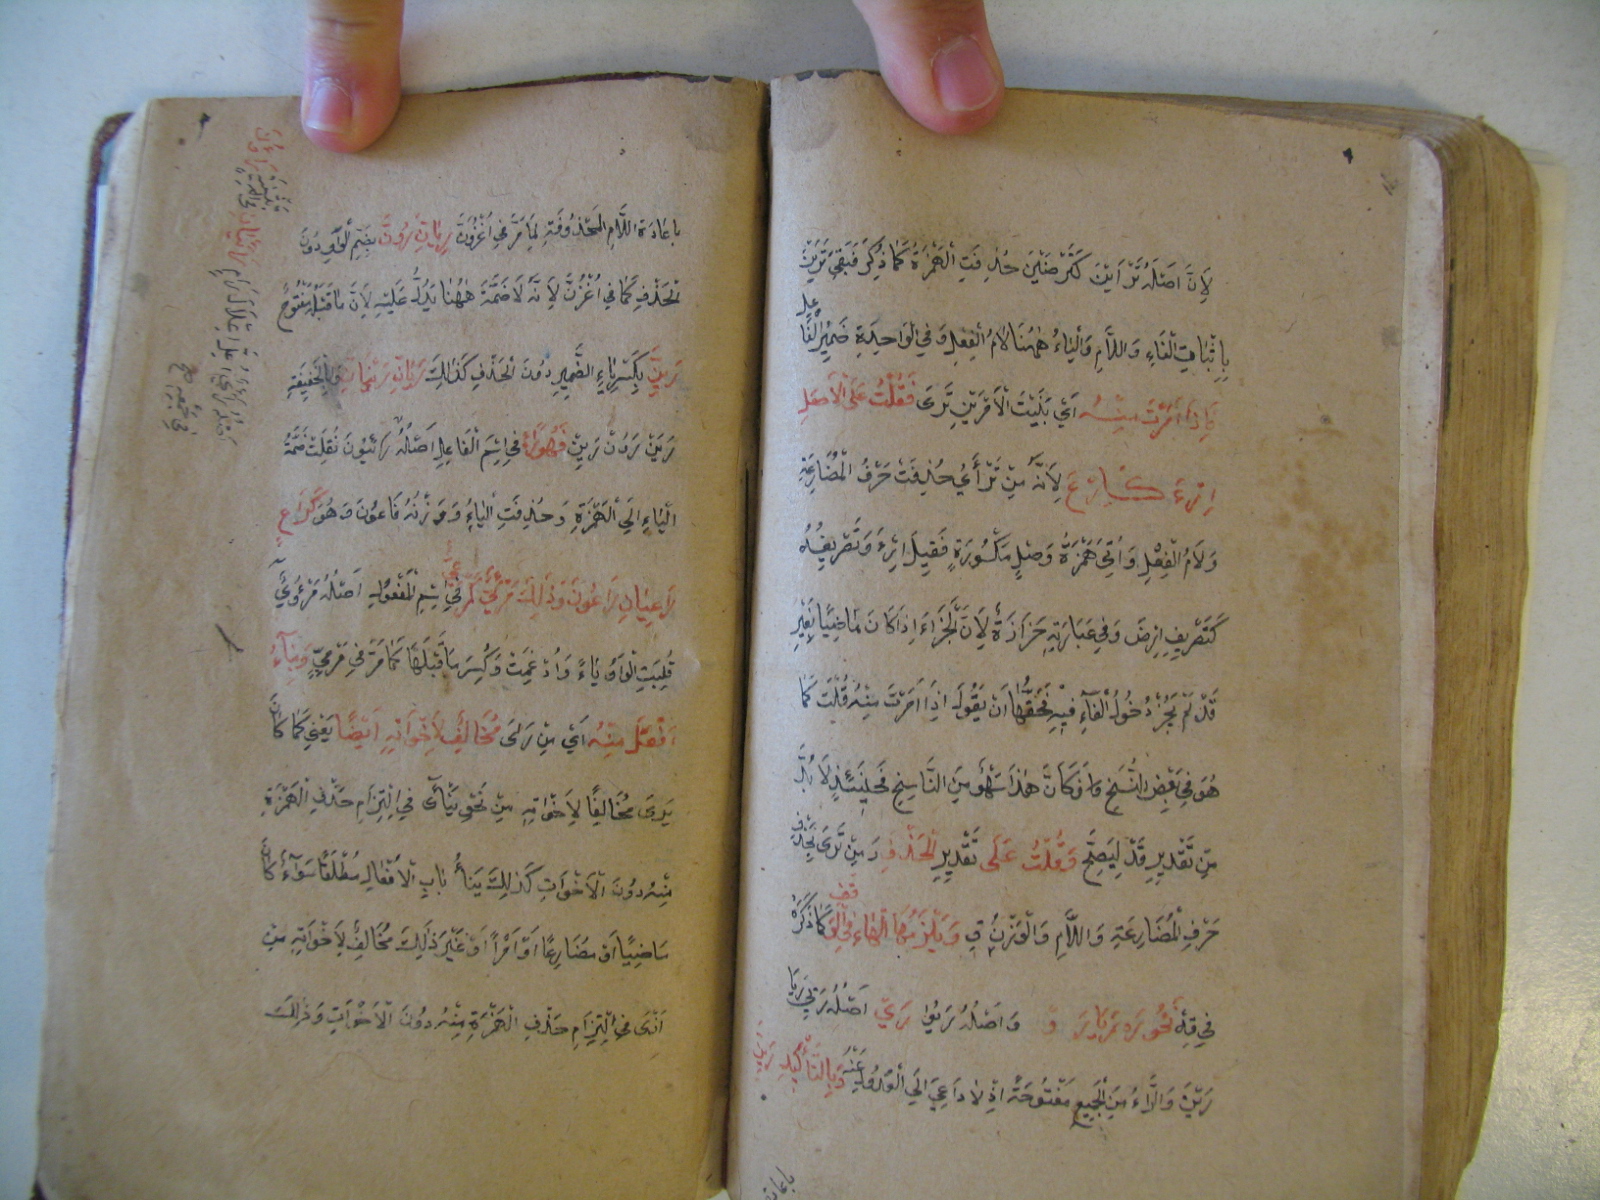 لِاَنَّ اَصْلَهُ تَرْاَيْنَ كَتَرْضَيْنَ حُذِفَتِ الْهَمْزَةُ كَمَا ذُكِرَ فَبَقِيَ تَرَيْنَ
بِاِثْبَاتِ الْفَاءِ وَاللَّامِ وَالْيَاءُ هٰهُنَا لَامُ الْفِعْلِ وَفِي الْوَاحِدَةِ ضَمِيْرُ الْفَا
عِلِ
فَاِذَا اَمَرْتَ مِنْهُ اَيْ بَنَيْتَ الْاَمْرَ مِنْ تَرَى فَقُلْتَ عَلَى الْاَصْلِ
اِرْءَ كَاِرْعَ لِاَنَّهُ مِنْ تَرْأَىُ حُذِفَتْ حَرْفُ الْمُضَارَعَةِ
وَلَامُ الْفِعْلِ وَاُتِيَ هَمْزَةُ وَصْلٍ مَكْسُورَةٍ فَقِيلَ اِرْءَ وَتَصْرِيفُهُ
كَتَصْرِيفِ اِرْضَ وَفِي عِبَارَتِهِ حَزَازَةٌ لِاَنَّ الْجَزَاءَ اِذَا كَانَ مَاضِيًا بِغَيْرِ
قَدْ لَمْ يَجُزْ دُخُولُ الْفَاءِ فِيْهِ فَحَقُّهَا اَنْ يَقُولَ اِذَا اَمَرْتَ مِنْهُ قُلْتَ كَمَا
هُوَ فِي بَعْضِ النُّسَخِ وَكَاَنَّ هٰذَا سَهْوٌ مِنَ النَّاسِخِ فَحِيْنَئِذٍ لَا بُدَّ
مِنْ تَقْدِيرِ قَدْ لِيَصِحَّ وَقُلْتَ عَلَى تَقْدِيرِ الْحَذْفِ رَ مِنْ تَرَى بِحَذْفِ
حَرْفِ الْمُضَارَعَةِ وَاللَّامِ وَالْوَزْنُ فَ وَيَلْزَمُهَا الْهَاءُ فِي الْوَقْفِ كَمَا ذَكَرْ
فِي قِهْ نَحْوُ رَهْ رَيَا رَوْا وَاَصْلُهُ رَيُوا رَيْ اَصْلُهُ رَيِي رَيَا
رَيْنَ وَالرَّاءُ مِنَ الْجَمِيعِ مَفْتُوحَةٌ اِذْ لَا دَاعِيَ اِلَى الْعُدُولِ عَنْهُ وَبِالتَّأْكِيدِ رَيَنَّ
باعادة
بِاِعَادَةِ اللَّامِ الْمَحْذُوفَةِ لِمَا مَرَّ فِي اُغْزُوَنَّ رَيَانِّ رَوُنَّ بِضَمِّ الْوَاوِ دُونَ
الْحَذْفِ كَمَا فِي اُغْزُنَّ لِاَنَّهُ لَا ضَمَّةَ هٰهُنَا يَدُلُّ عَلَيْهِ لِاَنَّ مَا قَبْلَهُ مَفْتُوحٌ
رَيِنَّ بِكَسْرِ يَاءِ الضَّمِيرِ دُونَ الْحَذْفِ كَذٰلِكَ رَيَانِّ رَيْنَانِّ وَبِالْخَفِيفَةِ
رَيَنْ رَوُنْ رَيِنْ فَهُوَ رَاءٍ فِي اِسْمِ الْفَاعِلِ اَصْلُهُ رَائِيُونَ نُقِلَتْ ضَمَّةُ
الْيَاءِ اِلَى الْهَمْزَةِ وَحُذِفَتِ الْيَاءُ وَوَزْنُهُ فَاعُونَ وَهُوَ كَرَاعٍ
رَاعِيَانِ رَاعُونَ وَذٰلِكَ مَرْئِيٌّ كَمَرْعِيٍّ فِي اِسْمِ الْمَفْعُولِ اَصْلُهُ مَرْءُوْيٌ
قُلِبَتِ الْوَاوُ يَاءً وَاُدْغِمَتْ وَكُسِرَ مَا قَبْلَهَا كَمَا مَرَّ فِي مَرْمِيٍّ وَبِنَاءُ
اَفْعَلَ مِنْهُ اَيْ مِنْ رَاَى مُخَالِفٌ لِاَخَوَاتِهِ اَيْضًا يَعْنِي كَمَا كَانَ
يَرَى مُخَالِفًا لِاَخَوَاتِهِ مِنْ نَحْوِ يَنْأَى فِي الْتِزَامِ حَذْفِ الْهَمْزَةِ
مِنْهُ دُونَ الْاَخَوَاتِ كَذٰلِكَ بِنَاءُ بَابِ الْاِفْعَالِ مُطْلَقًا سَوَاءٌ كَانَ
مَاضِيًا اَوْ مُضَارِعًا اَوْ اَمْرًا اَوْ غَيْرَ ذٰلِكَ مُخَالِفٌ لِاَخَوَاتِهِ مِنْ
اَنْأَى فِي الْتِزَامِ حَذْفِ الْهَمْزَةِ مِنْهُ دُونَ الْاَخَوَاتِ وَذٰلِكَ